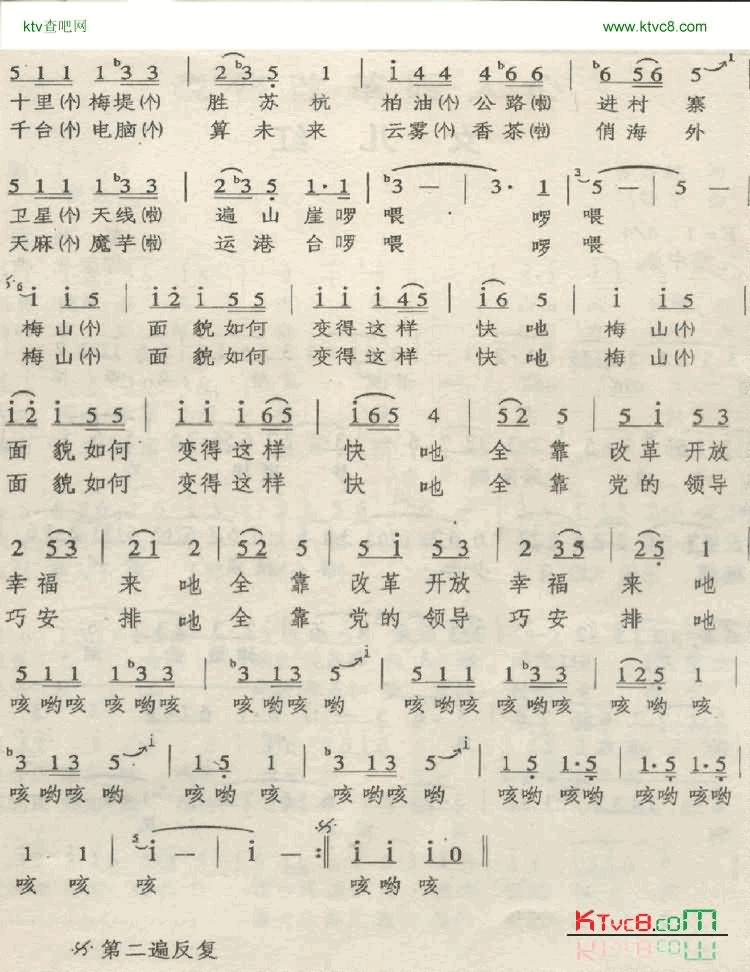 ktv查吧网
www.ktvc8.com
5 1 1 1 ♭3 3 | 2 ♭3 5 1 | i 4 4 4 ♭6 6 | ♭6 5 6 5 i
十里(个)梅堤(个) 胜苏杭 柏油(个)公路(啦) 进村寨
千台(个)电脑(个) 算未来 云雾(个)香茶(啦) 俏海外
5 1 1 1 ♭3 3 | 2 ♭3 5 1· 1 | ♭3 — | 3· 1 | 5 — | 5 —
卫星(个)天线(啦) 遍山崖啰 喂 啰 喂
天麻(个)魔芋(啦) 运港台啰 喂 啰 喂
i i 5 | i 2 i 5 5 | i i i 4 5 | i 6 5 | i i 5
梅山(个) 面貌如何 变得这样 快吔 梅山(个)
梅山(个) 面貌如何 变得这样 快吔 梅山(个)
i 2 i 5 5 | i i i 6 5 | i 6 5 4 | 5 2 5 | 5 i 5 3
面貌如何 变得这样 快吔 全靠 改革开放
面貌如何 变得这样 快吔 全靠 党的领导
2 5 3 | 2 1 2 | 5 2 5 | 5 i 5 3 | 2 3 5 | 2 5 1
幸福 来吔 全靠 改革开放 幸福 来吔
巧安 排吔 全靠 党的领导 巧安 排吔
5 1 1 1 ♭3 3 | ♭3 1 3 5 i | 5 1 1 1 ♭3 3 | i 2 5 1
咳哟咳哟咳 咳哟咳哟 咳哟咳哟咳 咳哟咳
♭3 1 3 5 i | 1 5 1 | ♭3 1 3 5 i | 1 5 1· 5 | 1· 5 1· 5
咳哟咳哟 咳哟咳 咳哟咳哟 咳哟咳哟 咳哟咳哟
1 1 | 5 i — | i — :‖ i i i 0 ‖
咳 咳 咳 咳哟咳
第二遍反复
KTVC8.COM